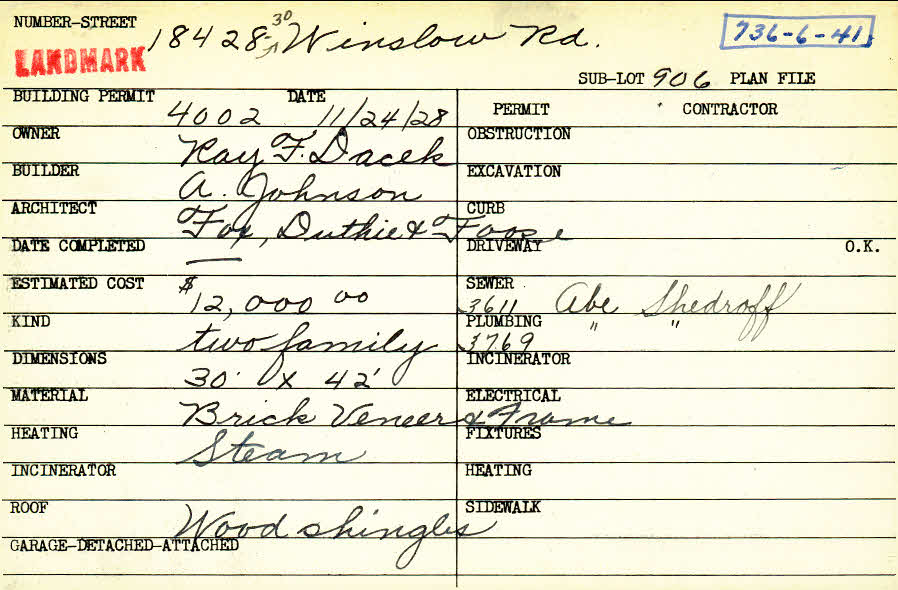 NUMBER-STREET 18428-30 Winslow Rd. 736-6-41
LANDMARK
SUB-LOT 906 PLAN FILE
BUILDING PERMIT 4002 DATE 11/24/28
PERMIT CONTRACTOR
OWNER Ray F. Dacek
OBSTRUCTION
BUILDER A. Johnson
EXCAVATION
ARCHITECT Fox, Duthie & Foose
CURB
DATE COMPLETED —
DRIVEWAY O.K.
ESTIMATED COST $12,000 00
SEWER 3611 Abe Shedroff
KIND two family
PLUMBING 3769 " "
DIMENSIONS 30' x 42'
INCINERATOR
MATERIAL Brick Veneer & Frame
ELECTRICAL
HEATING Steam
FIXTURES
INCINERATOR
HEATING
ROOF Wood shingles
SIDEWALK
GARAGE-DETACHED-ATTACHED